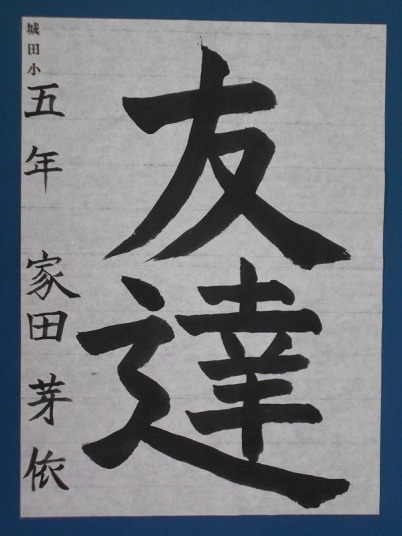 友達
城田小
五年 家田芽依